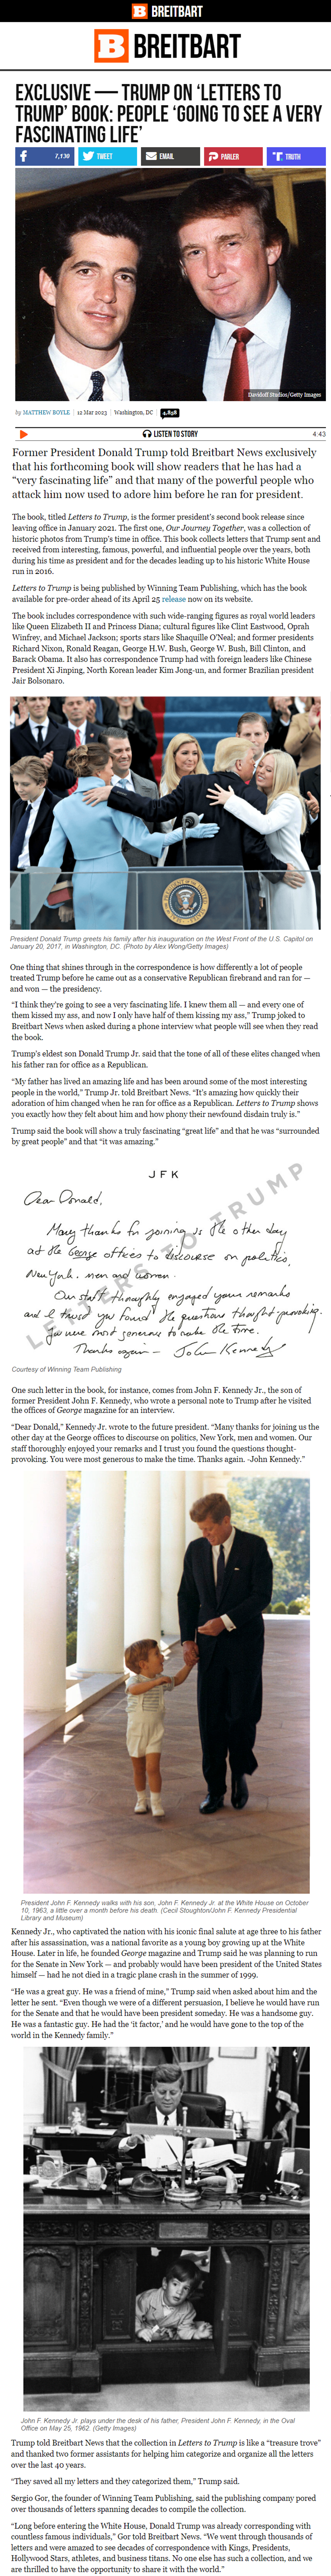 BREITBART
BREITBART
EXCLUSIVE — TRUMP ON ‘LETTERS TO
TRUMP’ BOOK: PEOPLE ‘GOING TO SEE A VERY
FASCINATING LIFE’
7,130 TWEET EMAIL PARLER TRUTH
Davidoff Studios/Getty Images
by MATTHEW BOYLE | 12 Mar 2023 | Washington, DC | 4,858
LISTEN TO STORY 4:43
Former President Donald Trump told Breitbart News exclusively
that his forthcoming book will show readers that he has had a
“very fascinating life” and that many of the powerful people who
attack him now used to adore him before he ran for president.
The book, titled Letters to Trump, is the former president’s second book release since
leaving office in January 2021. The first one, Our Journey Together, was a collection of
historic photos from Trump’s time in office. This book collects letters that Trump sent and
received from interesting, famous, powerful, and influential people over the years, both
during his time as president and for the decades leading up to his historic White House
run in 2016.
Letters to Trump is being published by Winning Team Publishing, which has the book
available for pre-order ahead of its April 25 release now on its website.
The book includes correspondence with such wide-ranging figures as royal world leaders
like Queen Elizabeth II and Princess Diana; cultural figures like Clint Eastwood, Oprah
Winfrey, and Michael Jackson; sports stars like Shaquille O’Neal; and former presidents
Richard Nixon, Ronald Reagan, George H.W. Bush, George W. Bush, Bill Clinton, and
Barack Obama. It also has correspondence Trump had with foreign leaders like Chinese
President Xi Jinping, North Korean leader Kim Jong-un, and former Brazilian president
Jair Bolsonaro.
President Donald Trump greets his family after his inauguration on the West Front of the U.S. Capitol on
January 20, 2017, in Washington, DC. (Photo by Alex Wong/Getty Images)
One thing that shines through in the correspondence is how differently a lot of people
treated Trump before he came out as a conservative Republican firebrand and ran for —
and won — the presidency.
“I think they’re going to see a very fascinating life. I knew them all — and every one of
them kissed my ass, and now I only have half of them kissing my ass,” Trump joked to
Breitbart News when asked during a phone interview what people will see when they read
the book.
Trump’s eldest son Donald Trump Jr. said that the tone of all of these elites changed when
his father ran for office as a Republican.
“My father has lived an amazing life and has been around some of the most interesting
people in the world,” Trump Jr. told Breitbart News. “It’s amazing how quickly their
adoration of him changed when he ran for office as a Republican. Letters to Trump shows
you exactly how they felt about him and how phony their newfound disdain truly is.”
Trump said the book will show a truly fascinating “great life” and that he was “surrounded
by great people” and that “it was amazing.”
JFK
Dear Donald,
Many thanks for joining us the other day
at the George offices to discourse on politics,
New York, men and women.
Our staff thoroughly enjoyed your remarks
and I trust you found the questions thought-provoking.
You were most generous to make the time.
Thanks again — John Kennedy
LETTERS TO TRUMP
Courtesy of Winning Team Publishing
One such letter in the book, for instance, comes from John F. Kennedy Jr., the son of
former President John F. Kennedy, who wrote a personal note to Trump after he visited
the offices of George magazine for an interview.
“Dear Donald,” Kennedy Jr. wrote to the future president. “Many thanks for joining us the
other day at the George offices to discourse on politics, New York, men and women. Our
staff thoroughly enjoyed your remarks and I trust you found the questions thought-
provoking. You were most generous to make the time. Thanks again. -John Kennedy.”
President John F. Kennedy walks with his son, John F. Kennedy Jr. at the White House on October
10, 1963, a little over a month before his death. (Cecil Stoughton/John F. Kennedy Presidential
Library and Museum)
Kennedy Jr., who captivated the nation with his iconic final salute at age three to his father
after his assassination, was a national favorite as a young boy growing up at the White
House. Later in life, he founded George magazine and Trump said he was planning to run
for the Senate in New York — and probably would have been president of the United States
himself — had he not died in a tragic plane crash in the summer of 1999.
“He was a great guy. He was a friend of mine,” Trump said when asked about him and the
letter he sent. “Even though we were of a different persuasion, I believe he would have run
for the Senate and that he would have been president someday. He was a handsome guy.
He was a fantastic guy. He had the ‘it factor,’ and he would have gone to the top of the
world in the Kennedy family.”
John F. Kennedy Jr. plays under the desk of his father, President John F. Kennedy, in the Oval
Office on May 25, 1962. (Getty Images)
Trump told Breitbart News that the collection in Letters to Trump is like a “treasure trove”
and thanked two former assistants for helping him categorize and organize all the letters
over the last 40 years.
“They saved all my letters and they categorized them,” Trump said.
Sergio Gor, the founder of Winning Team Publishing, said the publishing company pored
over thousands of letters spanning decades to compile the collection.
“Long before entering the White House, Donald Trump was already corresponding with
countless famous individuals,” Gor told Breitbart News. “We went through thousands of
letters and were amazed to see decades of correspondence with Kings, Presidents,
Hollywood Stars, athletes, and business titans. No one else has such a collection, and we
are thrilled to have the opportunity to share it with the world.”